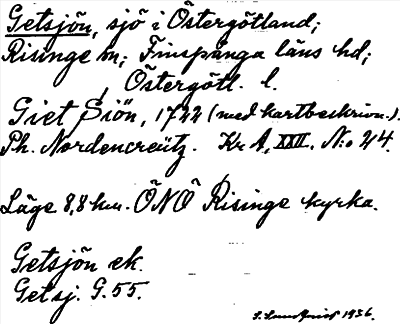 Getsjön, sjö i Östergötland;
Risinge sn; Finspånga läns hd;
Östergötl. l.
Giet Siön, 1722 (med kartbeskrivn.).
Ph. Nordencreütz. Kr A, XXII. N:o 24.
Läge 8,8 km. ÖNÖ Risinge kyrka.
Getsjön ek.
Getsj. G.55.
S. Lundqvist 1936.